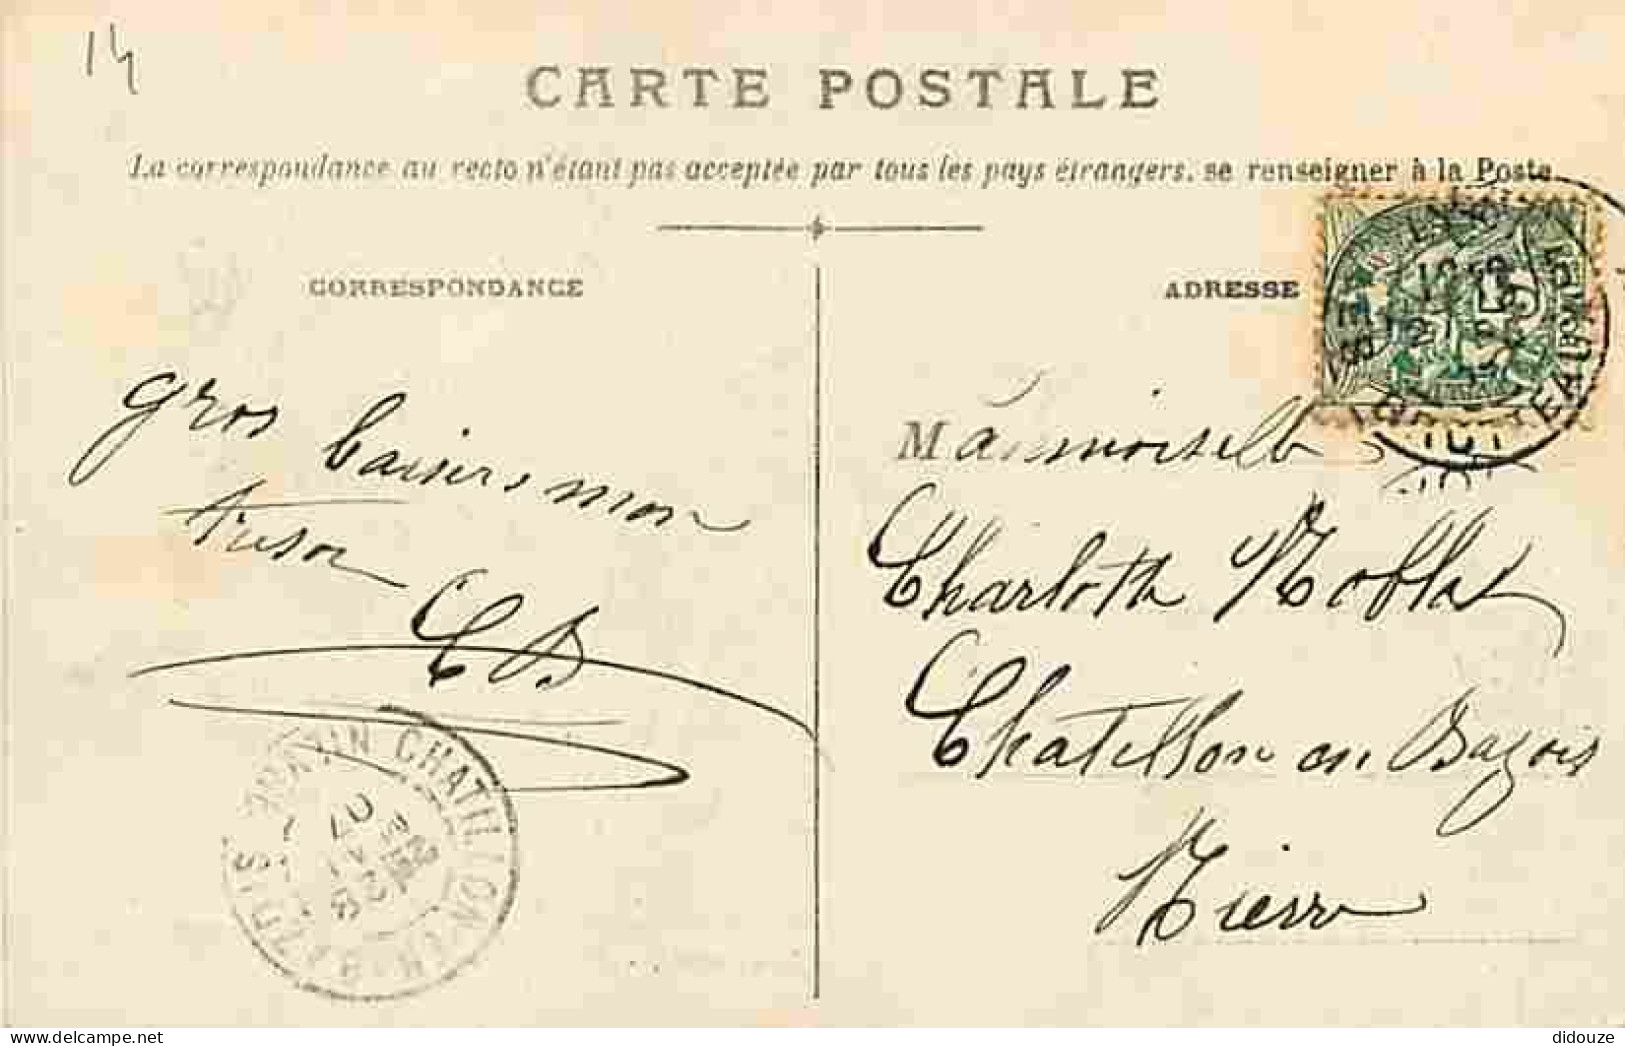 14
CARTE POSTALE
La correspondance au recto n'étant pas acceptée par tous les pays étrangers, se renseigner à la Poste.
CORRESPONDANCE
ADRESSE
gros baisers mon
trésor
CB
Mademoiselle
Charlotte
Chatillon en Bazois
Nièvre
CHATILLON-EN-BAZOIS
didouze